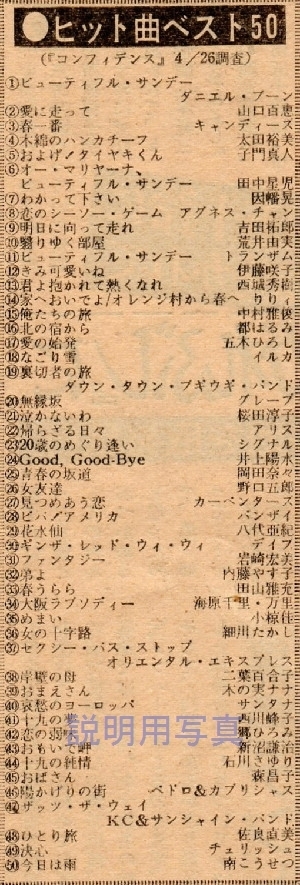 ●ヒット曲ベスト50
(『コンフィデンス』4/26調査)
①ビューティフル・サンデー
ダニエル・ブーン
②愛に走って 山口百恵
③春一番 キャンディーズ
④木綿のハンカチーフ 太田裕美
⑤およげ!タイヤキくん 子門真人
⑥オー・マリヤーナ、
ビューティフル・サンデー 田中星児
⑦わかって下さい 因幡晃
⑧恋のシーソー・ゲーム アグネス・チャン
⑨明日に向って走れ 吉田拓郎
⑩翳りゆく部屋 荒井由実
⑪ビューティフル・サンデー トランザム
⑫きみ可愛いね 伊藤咲子
⑬君よ抱かれて熱くなれ 西城秀樹
⑭家へおいでよ/オレンジ村から春へ りりィ
⑮俺たちの旅 中村雅俊
⑯北の宿から 都はるみ
⑰愛の始発 五木ひろし
⑱なごり雪 イルカ
⑲裏切者の旅
ダウン・タウン・ブギウギ・バンド
⑳無縁坂 グレープ
㉑泣かないわ 桜田淳子
㉒帰らざる日々 アリス
㉓20歳のめぐり逢い シグナル
㉔Good, Good-Bye 井上陽水
㉕青春の坂道 岡田奈々
㉖女友達 野口五郎
㉗見つめあう恋 カーペンターズ
㉘ビバ!アメリカ バンザイ
㉙花水仙 八代亜紀
㉚ギンザ・レッド・ウィ・ウィ ディブ
㉛ファンタジー 岩崎宏美
㉜弟よ 内藤やす子
㉝春うらら 田山雅充
㉞大阪ラプソディー 海原千里・万里
㉟めまい 小椋佳
㊱女の十字路 細川たかし
㊲セクシー・バス・ストップ
オリエンタル・エキスプレス
㊳岸壁の母 二葉百合子
㊴おまえさん 木の実ナナ
㊵哀愁のヨーロッパ サンタナ
㊶十九の夢 西川峰子
㊷恋の弱味 郷ひろみ
㊸おもいで岬 新沼謙治
㊹十九の純情 石川さゆり
㊺おばさん 森昌子
㊻陽かげりの街 ペドロ&カプリシャス
㊼ザッツ・ザ・ウェイ
KC&サンシャイン・バンド
㊽ひとり旅 佐良直美
㊾決心 チェリッシュ
㊿今日は雨 南こうせつ
説明用写真